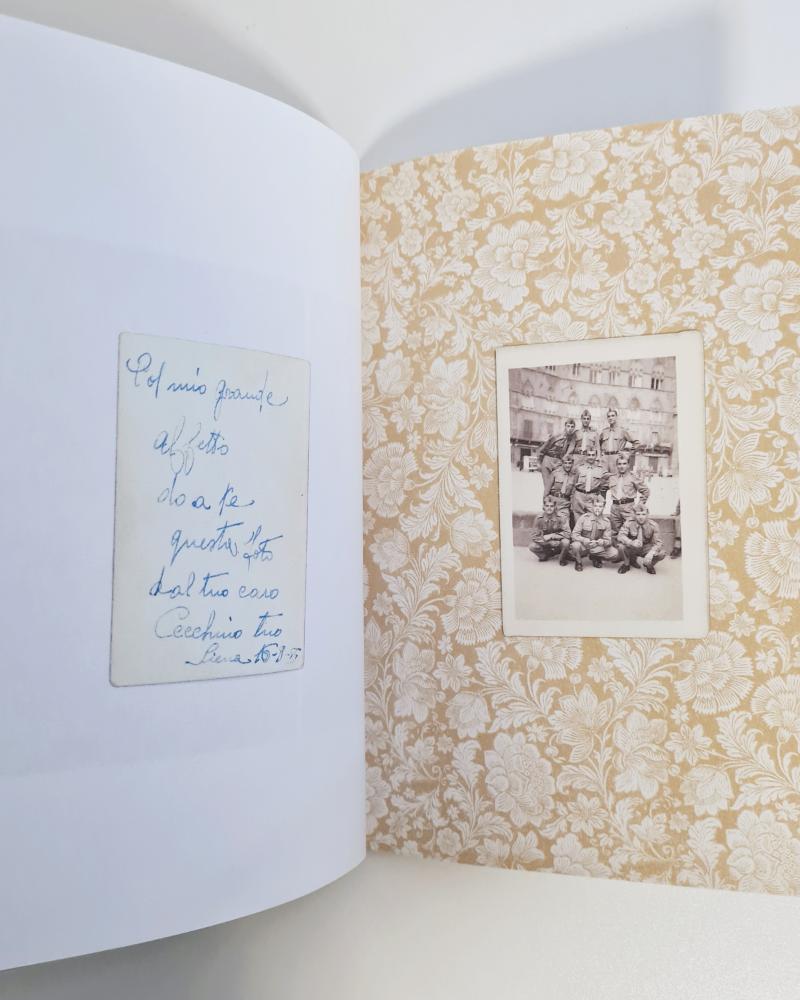 Col mio grande
affetto
do a te
questa foto
dal tuo caro
Cecchino tuo
Siena